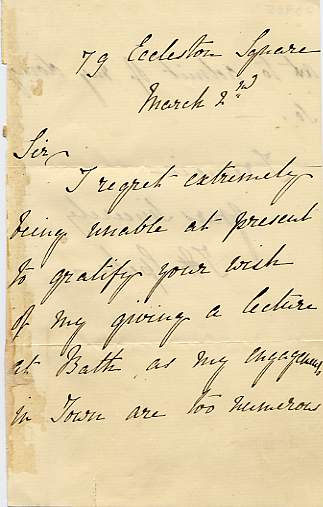 79 Eccleston Square
March 2nd
Sir
I regret extremely
being unable at present
to gratify your wish
of my giving a lecture
at Bath as my engagements
in Town are too numerous